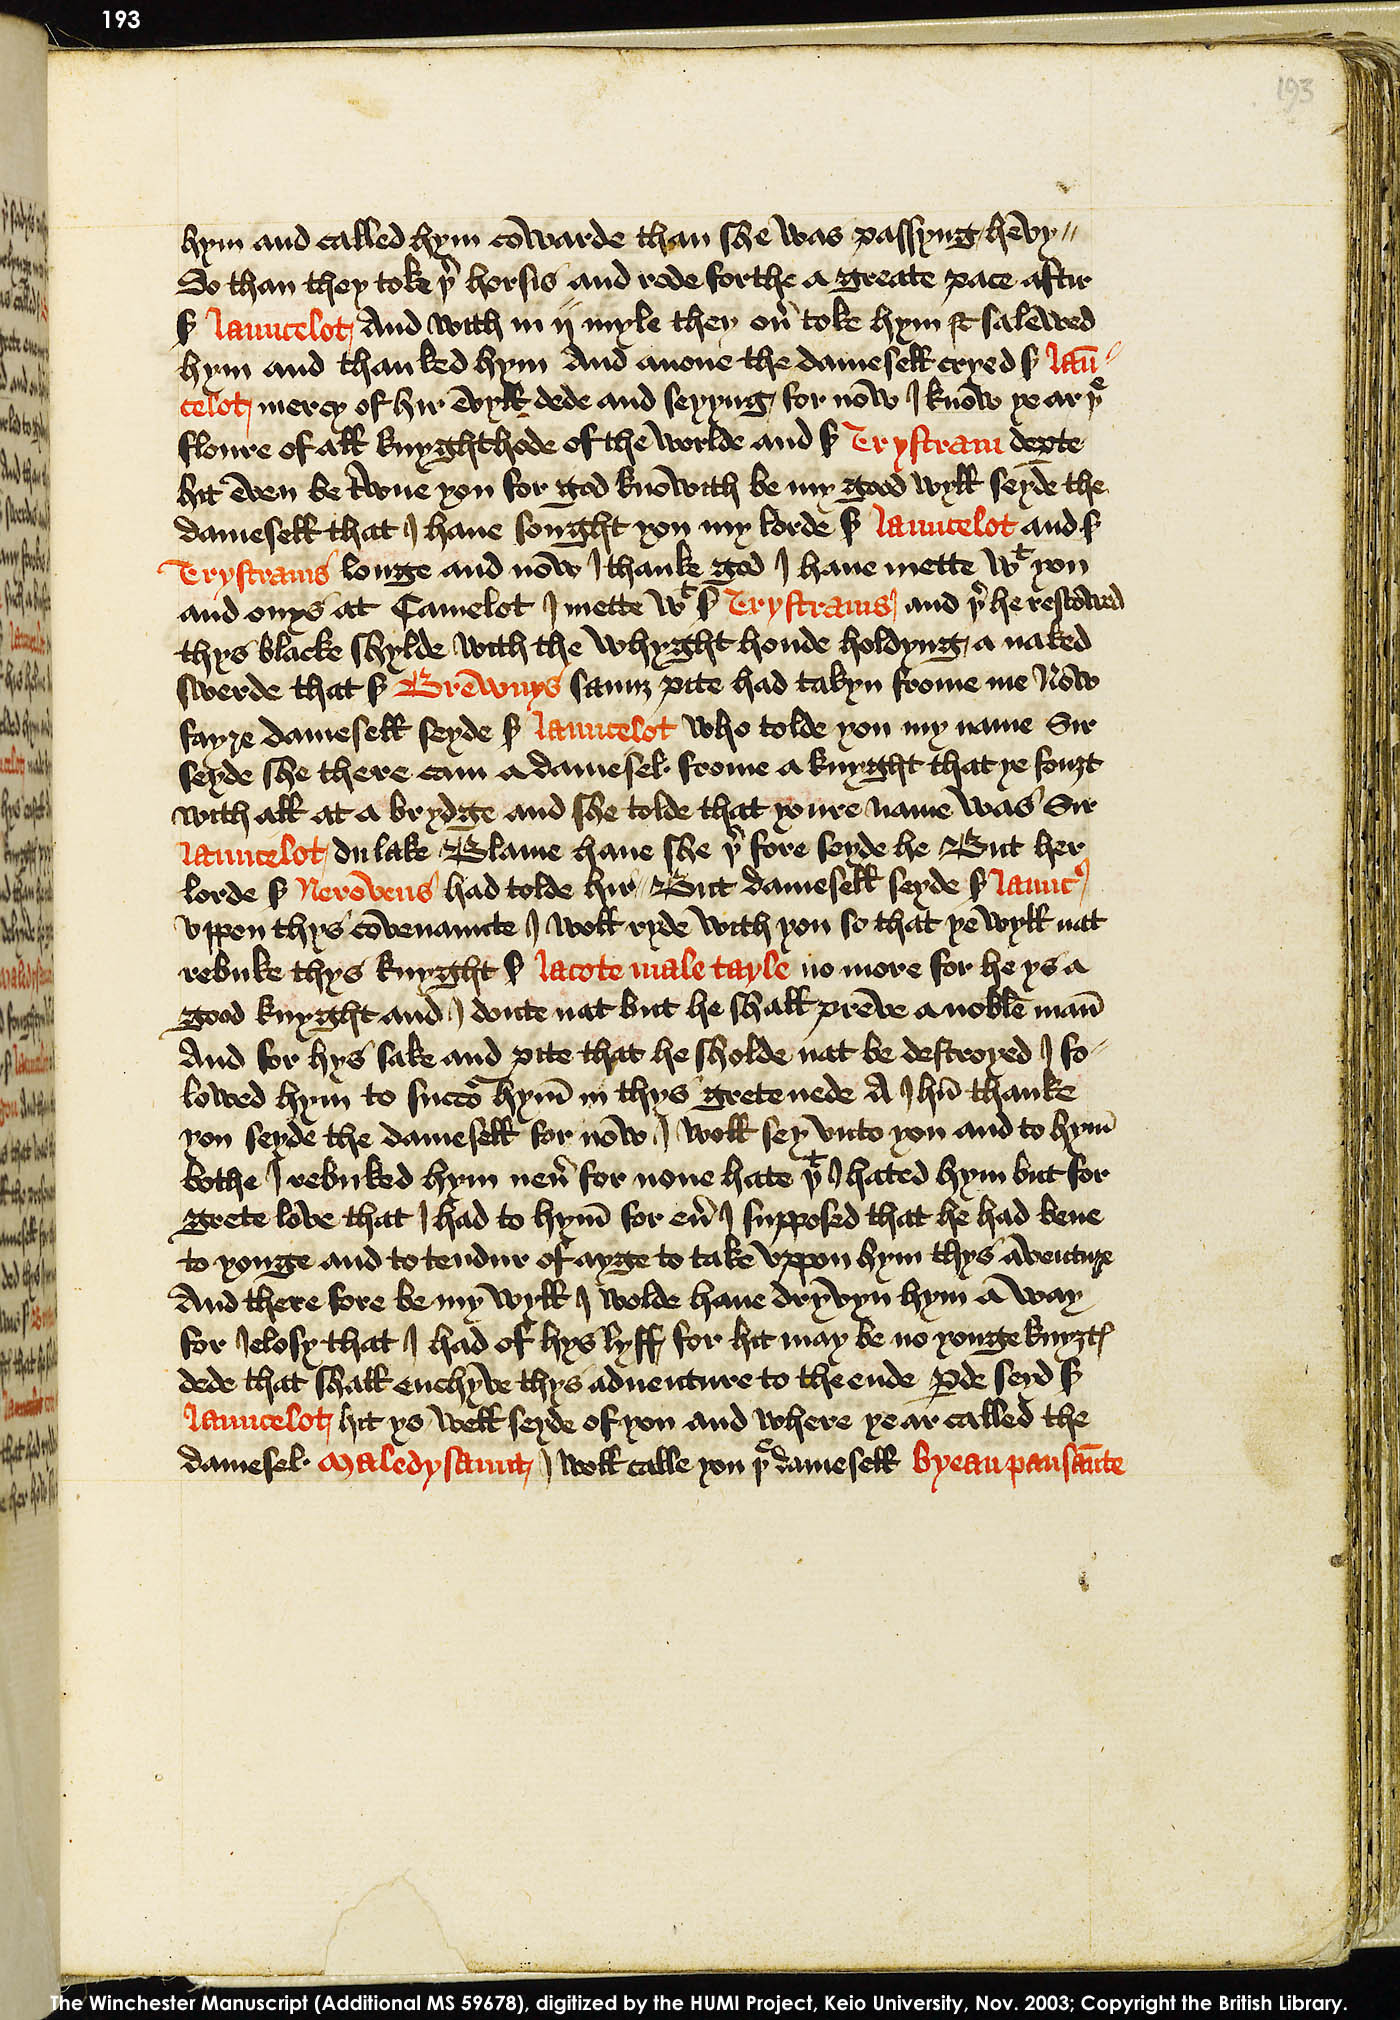 193
193
hym and called hym cowarde than she was passyng hevy //
So than they toke þr horsis and rode forthe a greate pace aftir
sr launcelot And with in ij myle they ouer toke hym & salewed
hym and thanked hym And anone the damesell cryed sr laun
celot mercy of hir evyll dede and seyyng for now I know ye ar þe
floure of all knyghthode of the worlde and sr Trystram depte
hit even be twne you for god knowith be my good wyll seyde the
damesell that I haue sought you my lorde sr launcelot and sr
Trystrams longe and now I thanke god I haue mette wt you
and onys at Camelot I mette wt sr Trystrams and þr he rescowed
thys blacke shylde with the whyght honde holdyng a naked
swerde that sr Brewnys saunz pite had takyn frome me Now
fayre damesell seyde sr launcelot who tolde you my name Sir
seyde she there cam a damesel frome a knyght that ye fouzt
with all at a brydge and she tolde that youre name was Sir
launcelot du lake Blame haue she þr fore seyde he But her
lorde sr Nerovens had tolde hir But damesell seyde sr launc
vppon thys covenaunte I woll ryde with you so that ye wyll nat
rebuke thys knyght sr lacote male tayle no more for he ys a
good knyght and I doute nat but he shall preve a noble man
And for hys sake and pite that he sholde nat be destroyed I fo
lowed hym to succor hym in thys grete nede A Ihu thanke
you seyde the damesell for now I woll sey vnto you and to hym
bothe I rebuked hym neuer for none hate þt I hated hym but for
grete love that I had to hym for euer I supposed that he had bene
to yonge and to tendur of ayge to take vppon hym thys aventure
And there fore be my wyll I wolde haue dryvyn hym a way
for Ielosy that I had of hys lyff for hit may be no yonge knyzt
dede that shall enchyve thys aduenture to the ende Pde seyd sr
launcelot hit ys well seyde of you and where ye ar called the
damesel Maledysaunt I woll calle you þe damesell byeau pansaunte
The Winchester Manuscript (Additional MS 59678), digitized by the HUMI Project, Keio University, Nov. 2003; Copyright the British Library.